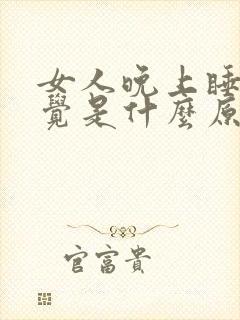 女人晚上睡
覺是什麼原
官富貴